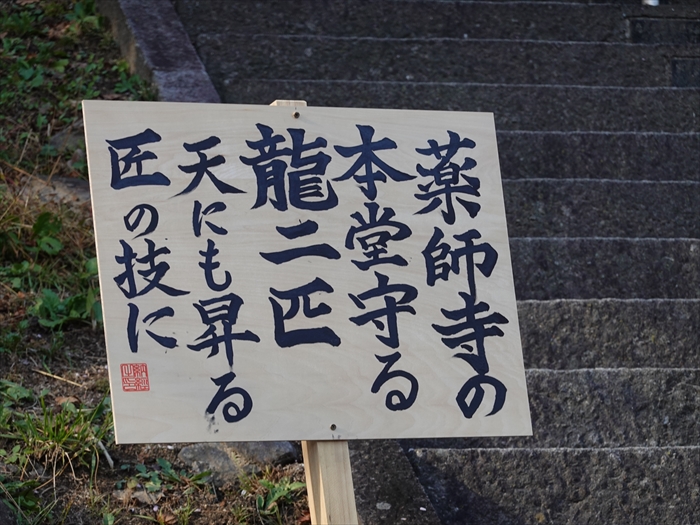 薬師寺の
本堂守る
龍二匹
天にも昇る
匠の技に